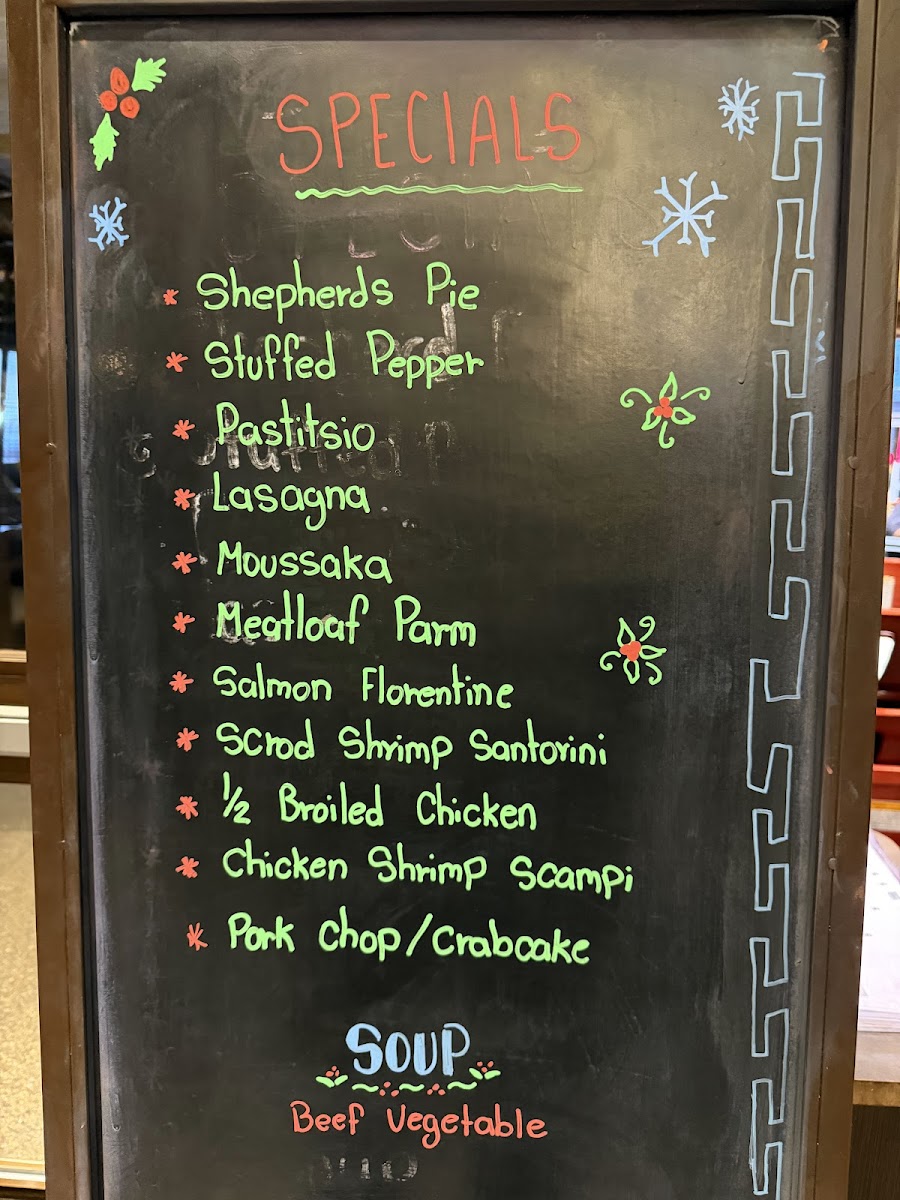 SPECIALS
* Shepherds Pie
* Stuffed Pepper
* Pastitsio
* Lasagna
* Moussaka
* Meatloaf Parm
* Salmon Florentine
* Scrod Shrimp Santorini
* ½ Broiled Chicken
* Chicken Shrimp Scampi
* Pork Chop/Crabcake
SOUP
Beef Vegetable